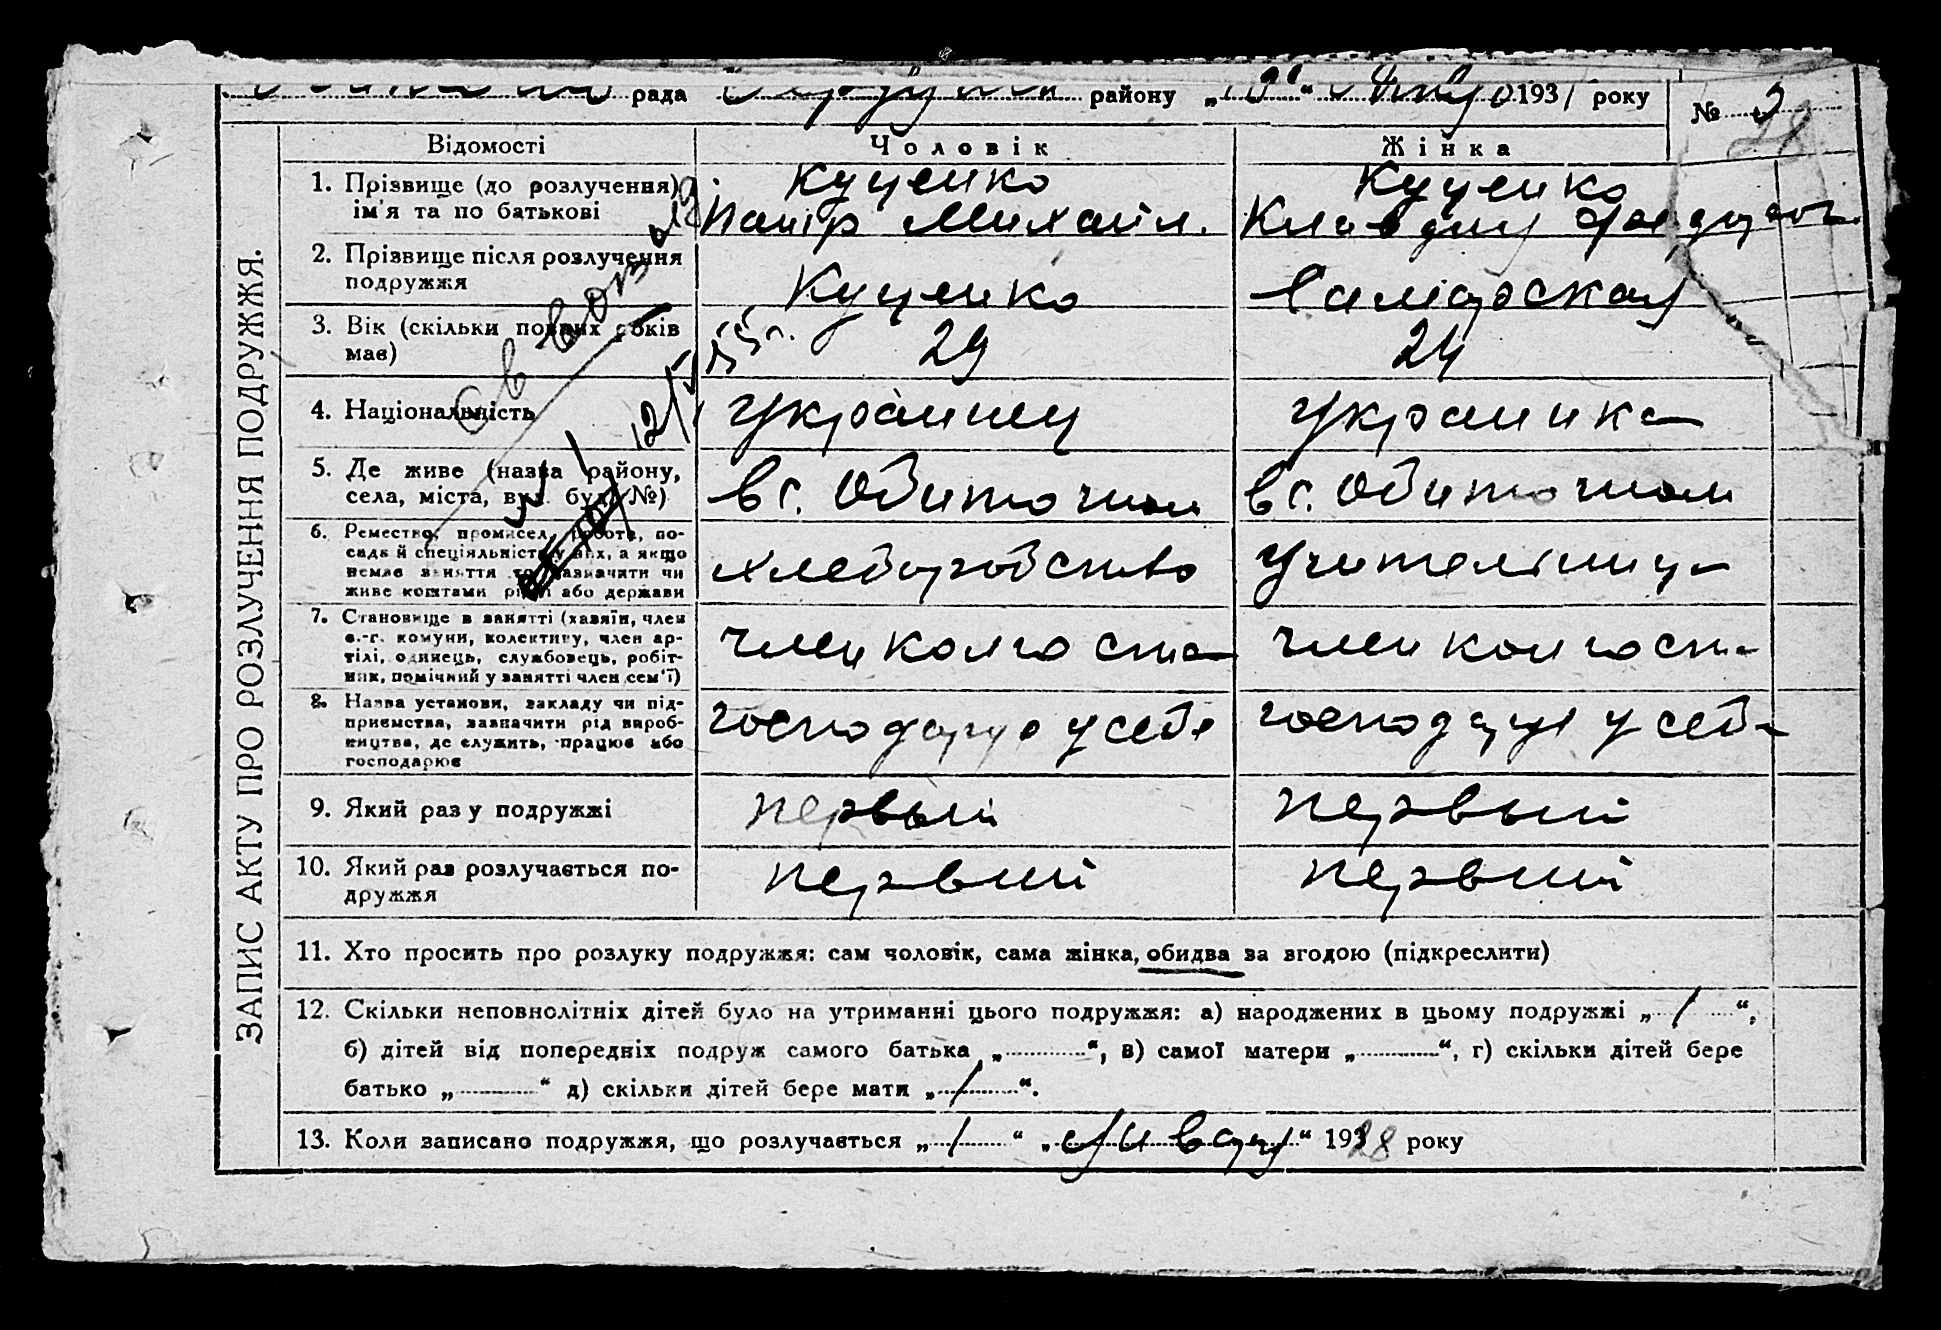 рада району 1931 року № 2
28
ЗАПИС АКТУ ПРО РОЗЛУЧЕННЯ ПОДРУЖЖЯ.
Відомості Чоловік Жінка
1. Прізвище (до розлучення) Куценко Куценко
ім'я та по батькові Михайл.
2. Прізвище після розлучення
подружжя Куценко
3. Вік (скільки повних років 29 24
має)
4. Національність украинец украинка
5. Де живе (назва району,
села, міста, вул. буд. №) в с. Обиточном в с. Обиточном
6. Ремество, промисел, робота, по-
сада й спеціяльність у них, а якщо
немає заняття то зазначити чи хлеборобство учительниця
живе коштами рідні або держави
7. Становище в занятті (хазяїн, член
с.-г. комуни, колективу, член ар-
тілі, одинець, службовець, робіт- член колгоспа член колгоспа
ник, помічний у занятті член сем'ї)
8. Назва установи, закладу чи під-
приємства, зазначити рід вироб- господарує у себе господарує у себе
ництва, де служить, працює або
господарює
9. Який раз у подружжі первый первый
10. Який раз розлучається по- первый первый
дружжя
11. Хто просить про розлуку подружжя: сам чоловік, сама жінка, обидва за згодою (підкреслити)
12. Скільки неповнолітніх дітей було на утриманні цього подружжя: а) народжених в цьому подружжі „ 1 “,
б) дітей від попередніх подруж самого батька „ “, в) самої матери „ “, г) скільки дітей бере
батько „ “ д) скільки дітей бере мати „ 1 “.
13. Коли записано подружжя, що розлучається „ 1 “ „ Январу “ 1928 року